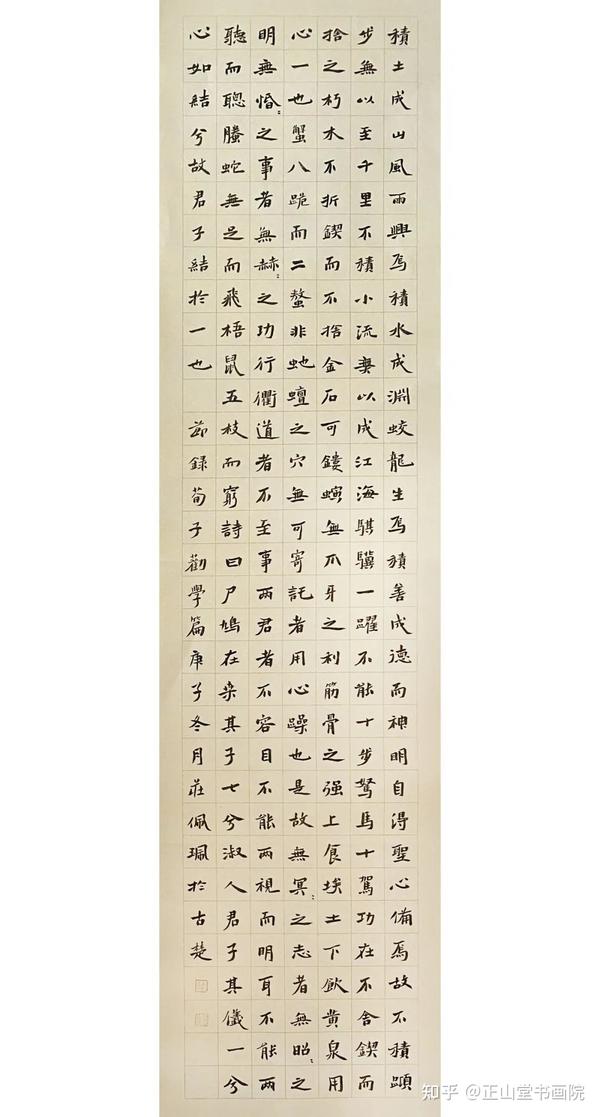 積土成山風雨興焉積水成淵蛟龍生焉積善成德而神明自得聖心備焉故不積蹞
步無以至千里不積小流無以成江海騏驥一躍不能十步駑馬十駕功在不舍鍥而
捨之朽木不折鍥而不捨金石可鏤螾無爪牙之利筋骨之强上食埃土下飲黃泉用
心一也蟹八跪而二螯非虵蟺之穴無可寄託者用心躁也是故無冥〻之志者無昭〻之
明無惛〻之事者無赫〻之功行衢道者不至事兩君者不容目不能兩視而明耳不能兩
聽而聰螣蛇無足而飛梧鼠五枝而窮詩曰尸鳩在桑其子七兮淑人君子其儀一兮
心如結兮故君子結於一也 節錄荀子勸學篇庚子冬月莊佩珮於古楚
知乎 @正山堂书画院